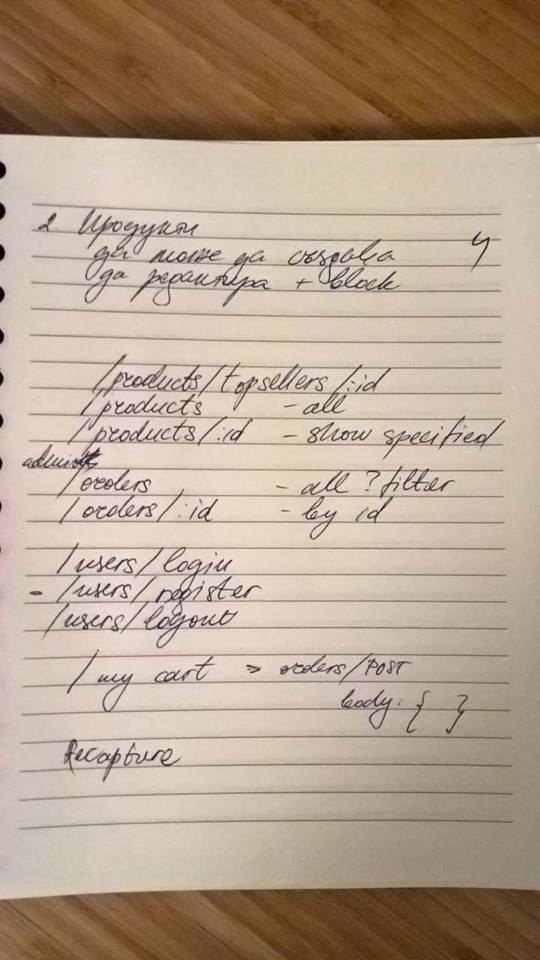 2. Продукти
да може да създава
да редактира + block
/products/topsellers/:id
/products - all
/products/:id - show specified
admin
/orders - all ? filter
/orders/:id - by id
/users/login
- /users/register
/users/logout
/my cart => orders/POST
body: { }
Recapture